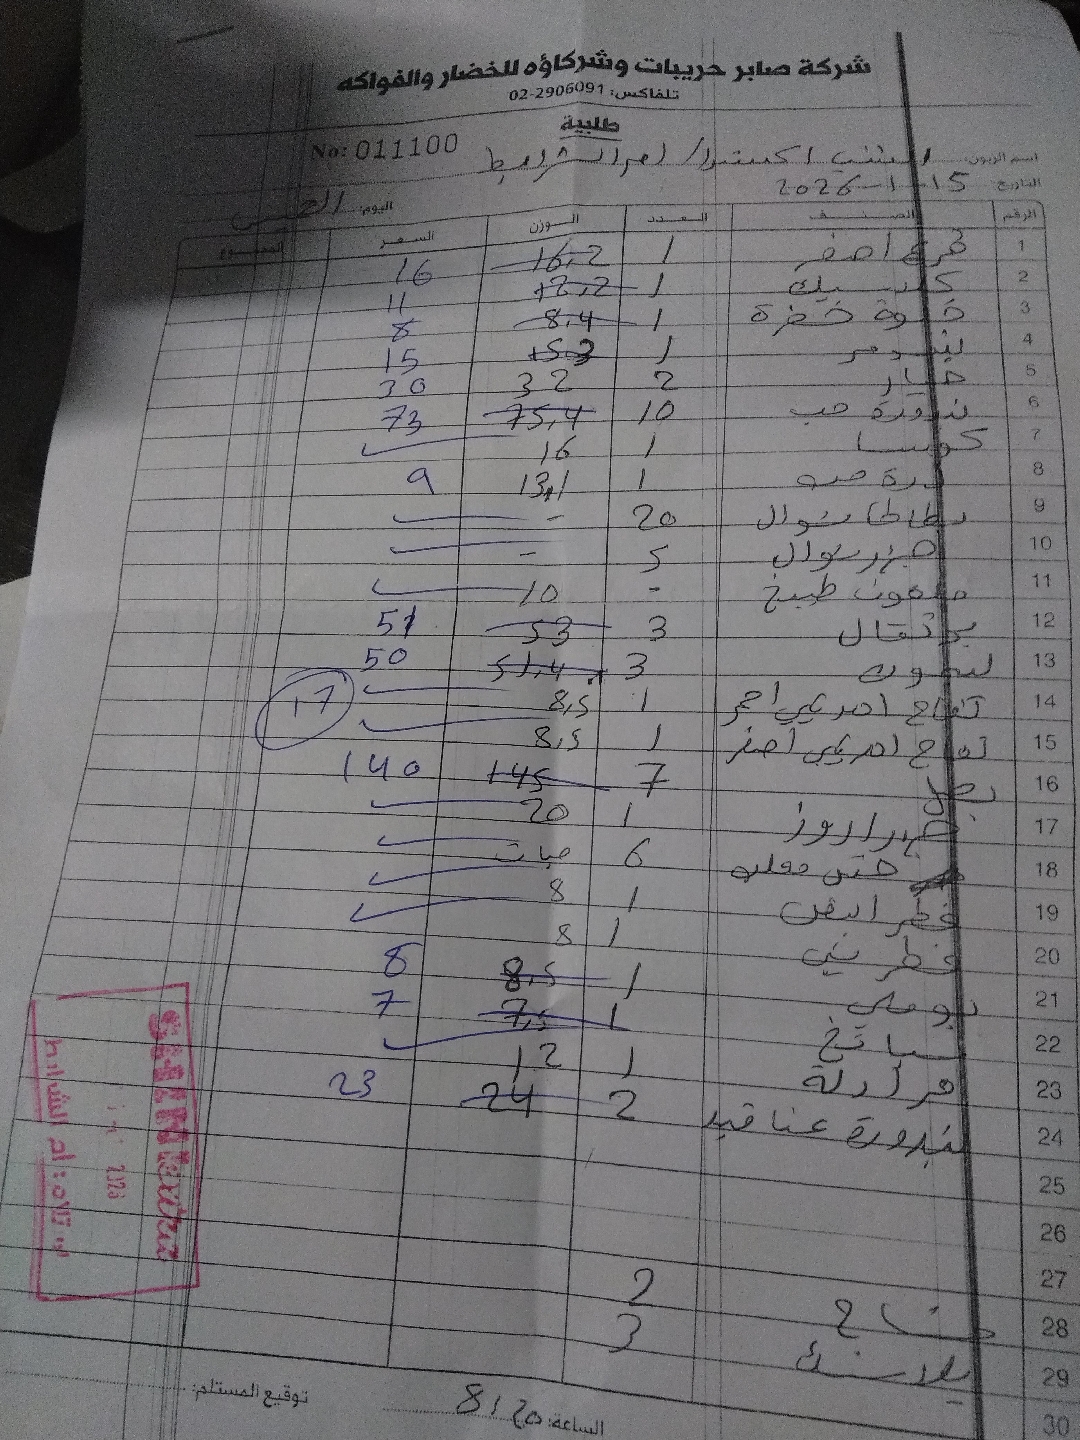 شركة صابر حريبات وشركاؤه للخضار والفواكه
تلفاكس: 02-2906091
طلبية
No: 011100
اسم الزبون: الشني اكسترا / ام الشرايط
التاريخ: 15-1-2026
اليوم:
الرقم الصنف العدد الوزن السعر
1 قرع اصفر 1 16,2 16
2 1 12,2 11
3 خضرة 1 8,4 8
4 1 15,3 15
5 خيار 2 32 30
6 بندورة حب 10 75,4 73
7 كوسا 1 16
8 1 13,1 9
9 بطاطا شوال 20 -
10 جزر شوال 5 -
11 ملفوف طبيخ - 10
12 برتقال 3 53 51
13 ليمون 3 51,4 50
14 تفاح امريكي احمر 1 8,5
15 تفاح امريكي اصفر 1 8,5
17
16 بصل 7 145 140
17 1 20
18 خس 6 حبات
19 فطر ابيض 1 8
20 فطر بني 1 8
21 بوملي 1 8,5 8
22 سبانخ 1 7,5 7
23 1 12
24 بندورة عناقيد 2 24 23
25
26
27
28 2
29 بلاستك 3
30
الساعة: 8:20
توقيع المستلم: